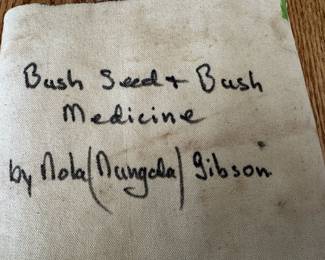 Bush Seed + Bush
Medicine
by Nola (Nungala) Gibson